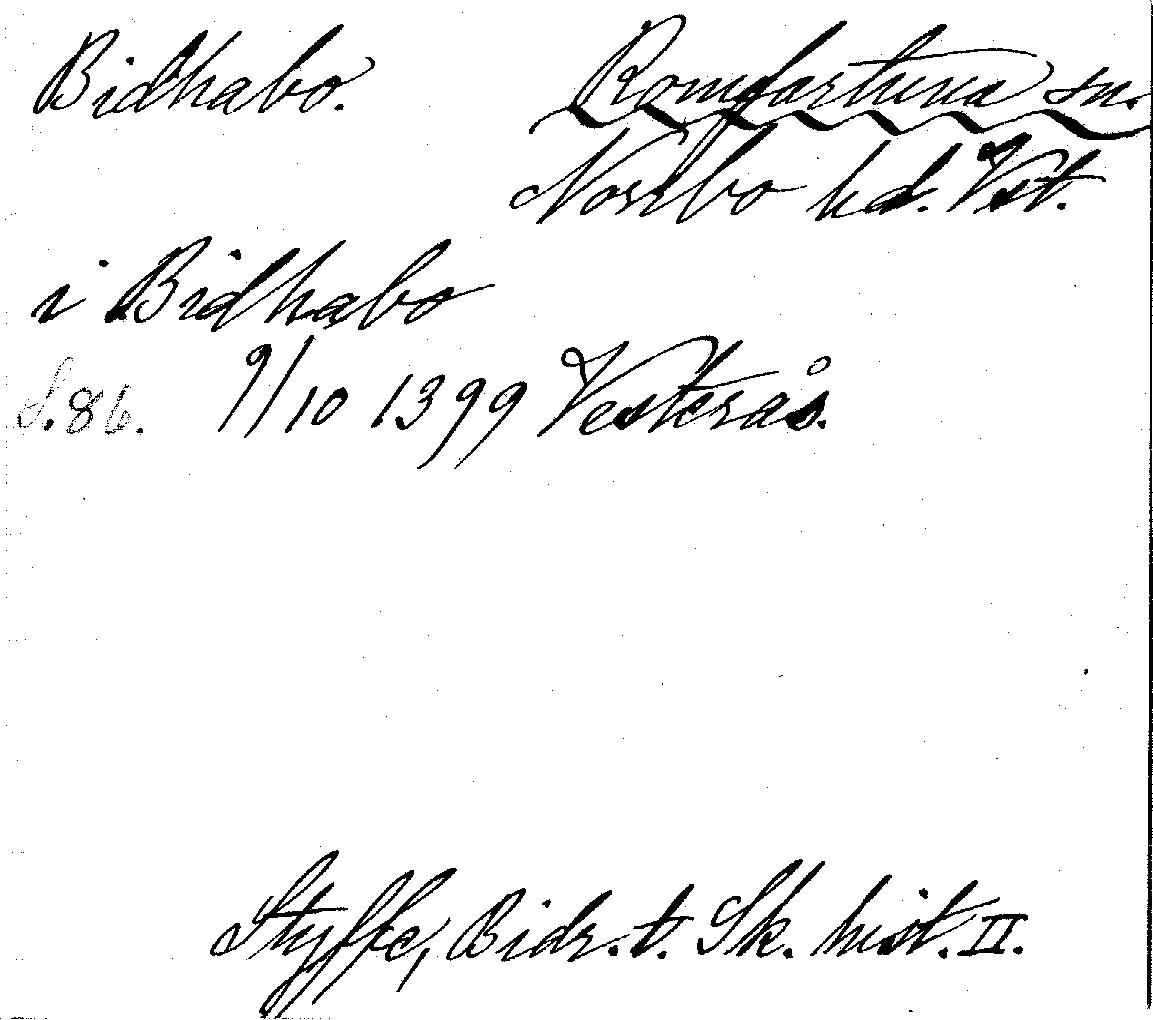 Bidhabo. Romfartuna sn.
Norrbo hd. Vst.
i Bidhabo
S. 86. 9/10 1399 Vesterås.
Styffe, Bidr. t. Sk. hist. II.